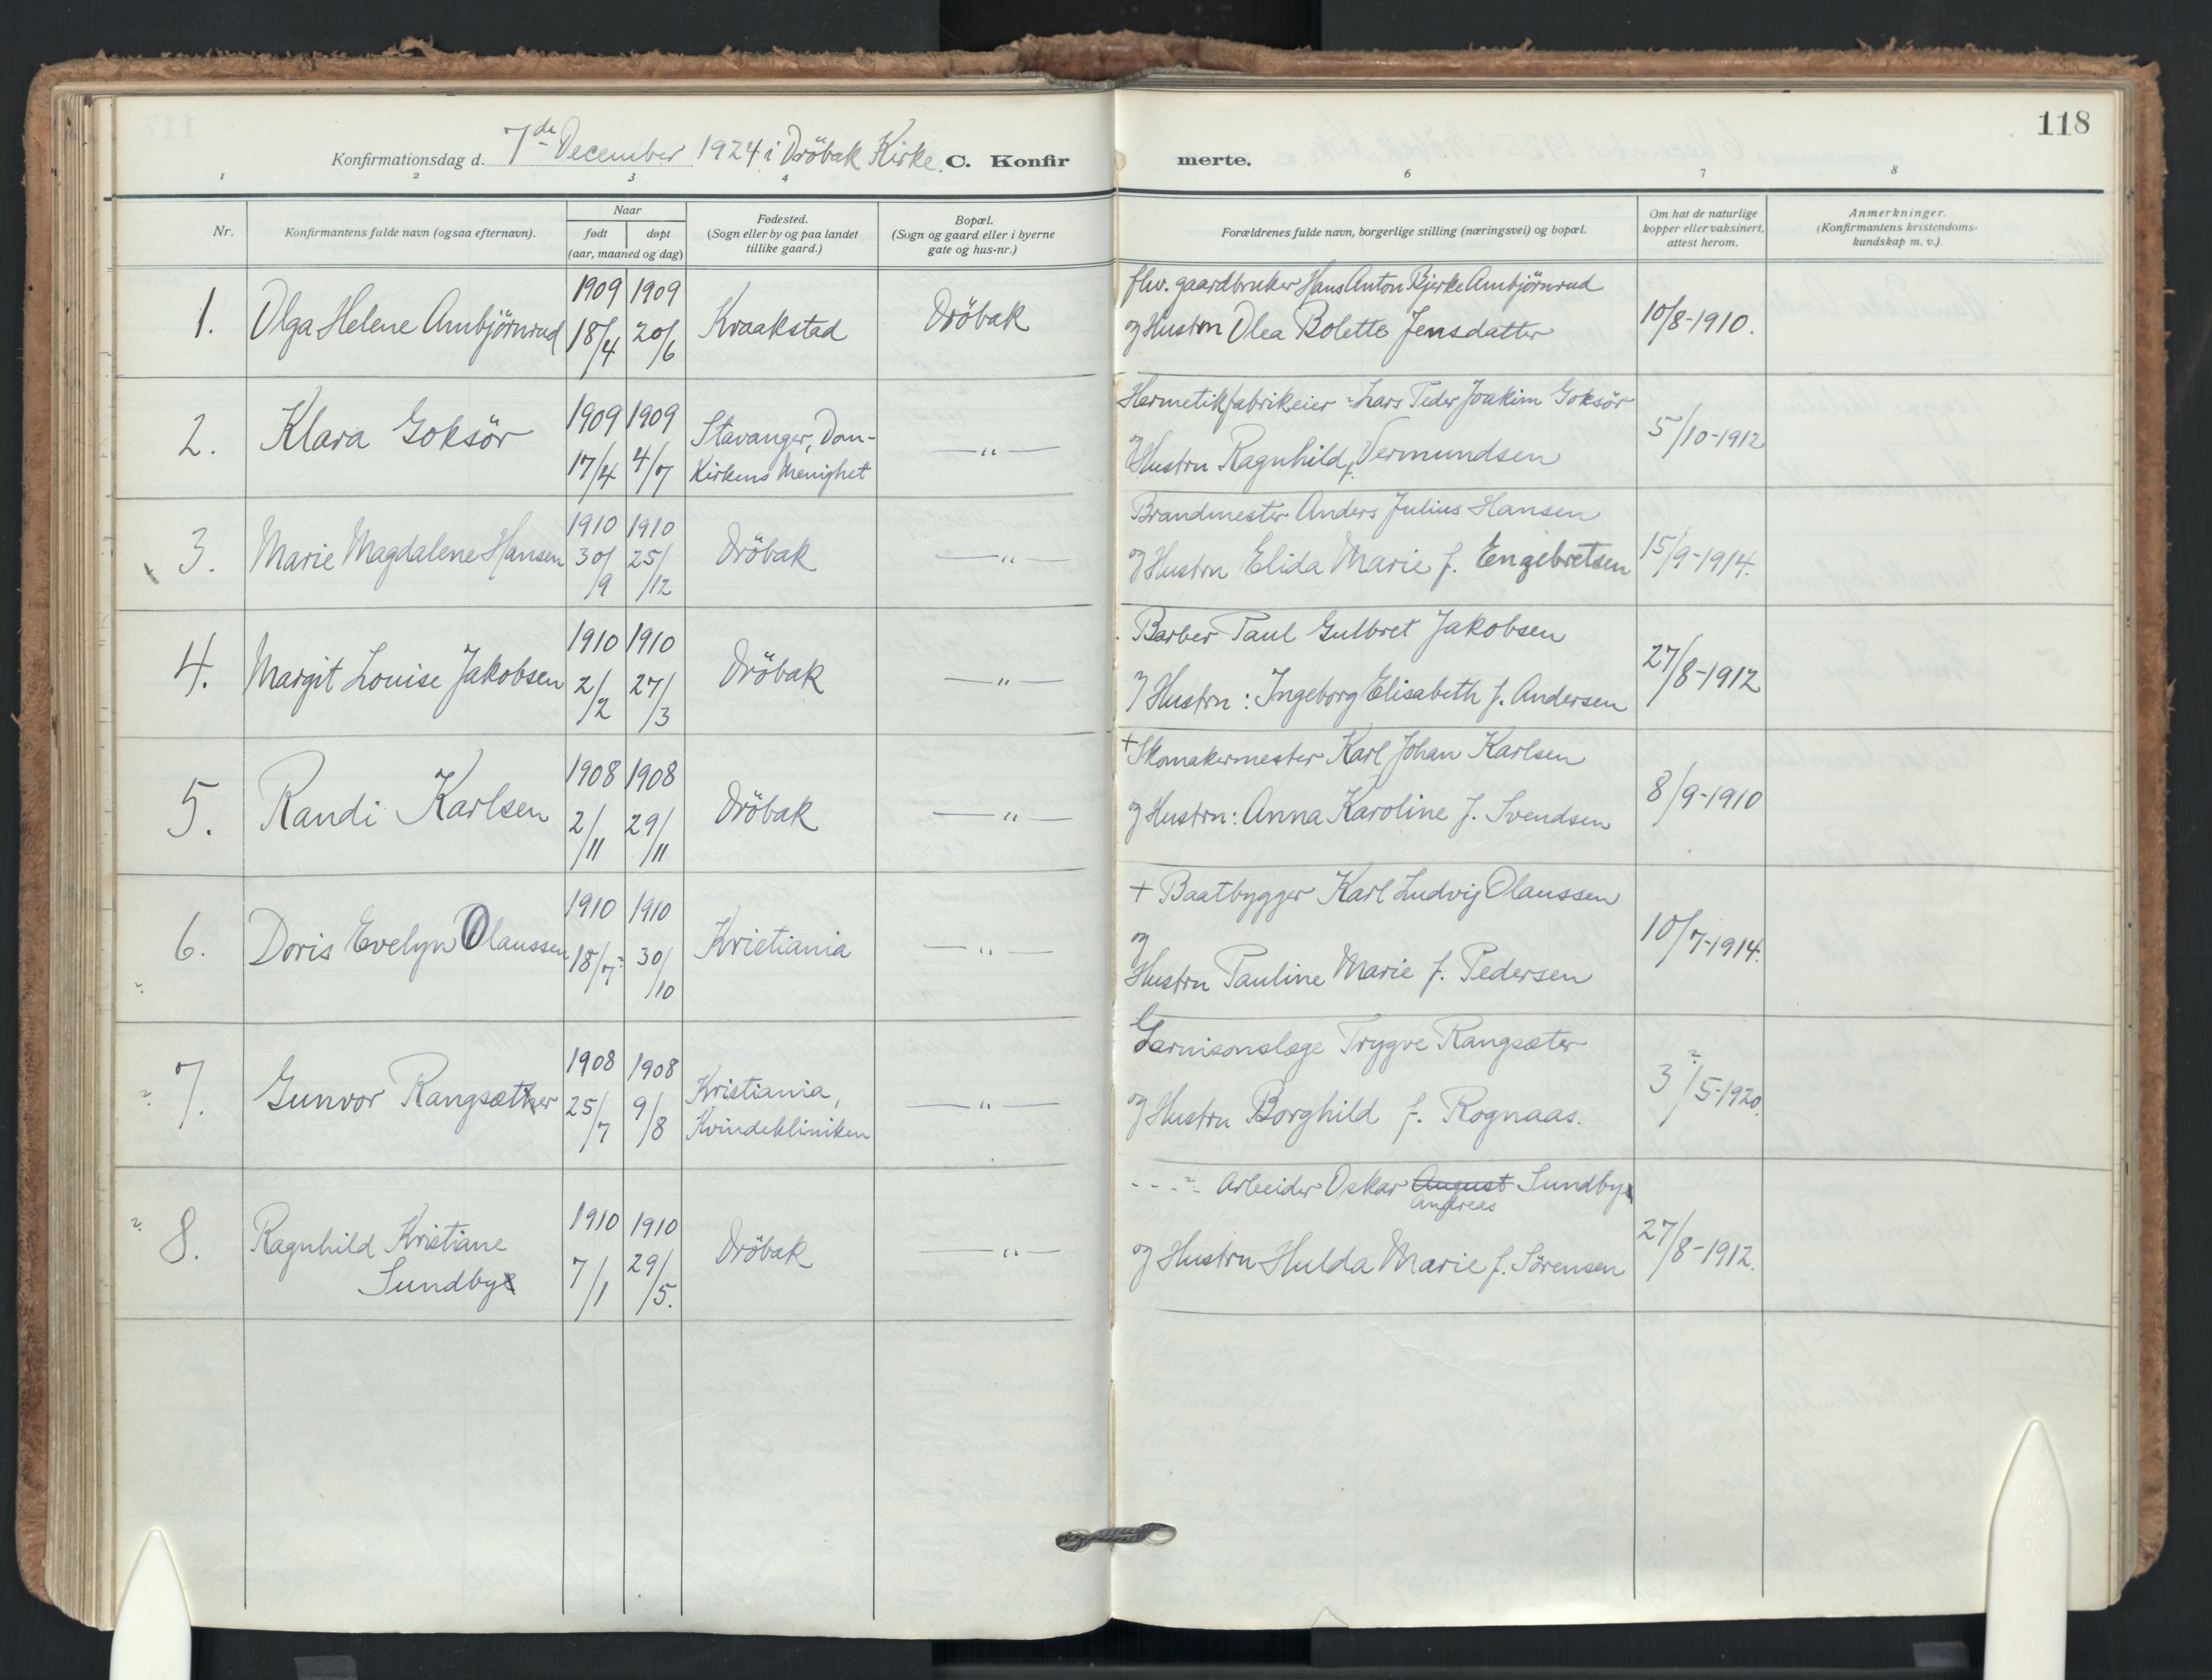 118
Konfirmationsdag d. 7de December 1924 i Dröbak Kirke. C. Konfir
merte.
1 2 3 4 6 7 8
Nr.
Konfirmantens fulde navn (ogsaa efternavn).
Naar
født døpt
(aar, maaned og dag)
Fødested.
(Sogn eller by og paa landet
tillike gaard.)
Bopæl.
(Sogn og gaard eller i byerne
gate og hus-nr.)
Forældrenes fulde navn, borgerlige stilling (næringsvei) og bopæl.
Om hat de naturlige
kopper eller vaksinert,
attest herom.
Anmerkninger.
(Konfirmantens kristendoms-
kundskap m. v.).
1909 1909 flw. gaardbruker Hans Anton Bjerke Ambjörnrud
1. Olga Helene Ambjörnrud 18/4 20/6 Kraakstad Dröbak og Hustru Olea Bolette Jensdatter 10/8-1910.
1909 1909 Stavanger, Dom- Hermetikfabrikeier Lars Peder Joakim Goksör
2. Klara Goksör 17/4 4/7 Kirkens Menighet — " — og Hustru Ragnhild f. Vermundsen 5/10-1912
1910 1910 Brandmester Anders Julius Hansen
3. Marie Magdalene Hansen 30/9 25/12 Dröbak — " — og Hustru Elida Marie f. Engebretsen 15/9-1914.
1910 1910 Barber Paul Gulbret Jakobsen
4. Margit Louise Jakobsen 2/2 27/3 Dröbak — " — og Hustru: Ingeborg Elisabeth f. Andersen 27/8-1912
1908 1908 + Skomakermester Karl Johan Karlsen
5. Randi Karlsen 2/11 29/11 Dröbak — " — og Hustru: Anna Karoline f. Svendsen 8/9-1910
1910 1910 + Baatbygger Karl Ludvig Olaussen
6. Doris Evelyn Olaussen 18/7 30/10 Kristiania — " — og
Hustru Pauline Marie f. Pedersen 10/7-1914.
1908 1908 Kristiania, Garnisonslæge Trygve Rangsæter
7. Gunvor Rangsæter 25/7 9/8 Kvindekliniken — " — og Hustru Borghild f. Rognaas. 3/5-1920.
1910 1910 Arbeider Oskar August Sundby
Andreas
8. Ragnhild Kristiane 7/1 29/5. Dröbak — " — og Hustru Hulda Marie f. Sörensen 27/8-1912.
Sundby